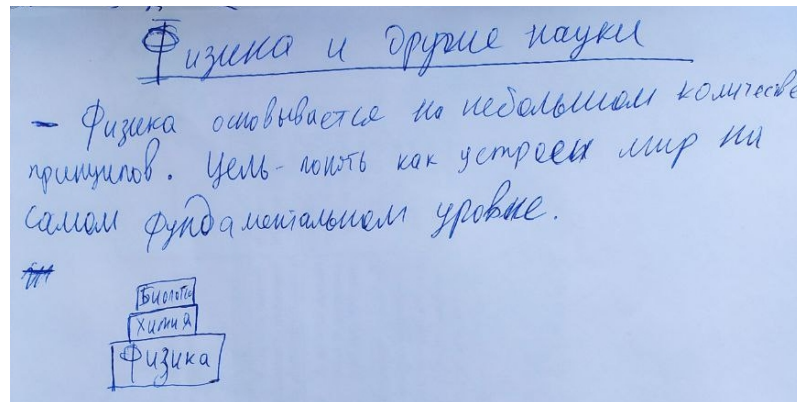 Физика и другие науки
- Физика основывается на небольшом количестве
принципов. Цель - понять как устроен мир на
самом фундаментальном уровне.
Биология
химия
Физика